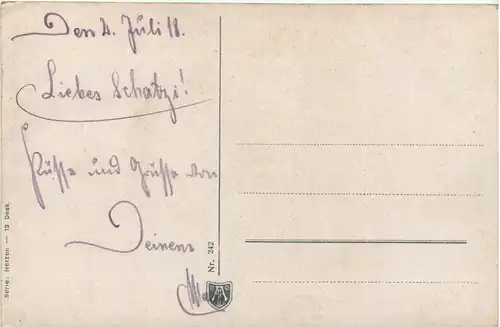 Den 2. Juli 18.
Liebes Schatzi!
Küsse und Grüsse von
Deinem
Nr. 242
Serie: Herzen — 12 Dess.